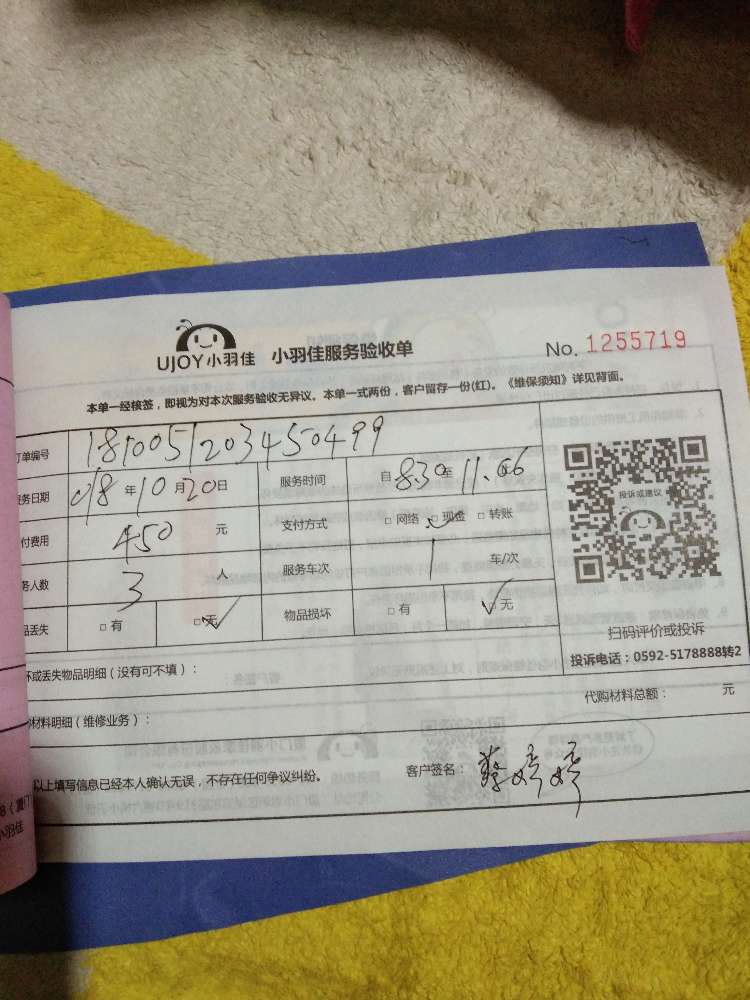 UJOY小羽佳 小羽佳服务验收单 No. 1255719
本单一经核签，即视为对本次服务验收无异议。本单一式两份，客户留存一份(红)。《维保须知》详见背面。
订单编号 181005120345 0499
务日期 018年10月20日 服务时间 自8:30至11.06
付费用 450 元 支付方式 □网络 ☑现金 □转账
务人数 3 人 服务车次 1 车/次
品丢失 □有 ☑无 物品损坏 □有 ☑无
投诉或建议
扫码评价或投诉
投诉电话：0592-5178888转2
坏或丢失物品明细（没有可不填）：
材料明细（维修业务）： 代购材料总额： 元
以上填写信息已经本人确认无误，不存在任何争议纠纷。 客户签名：蔡婷婷
小羽佳